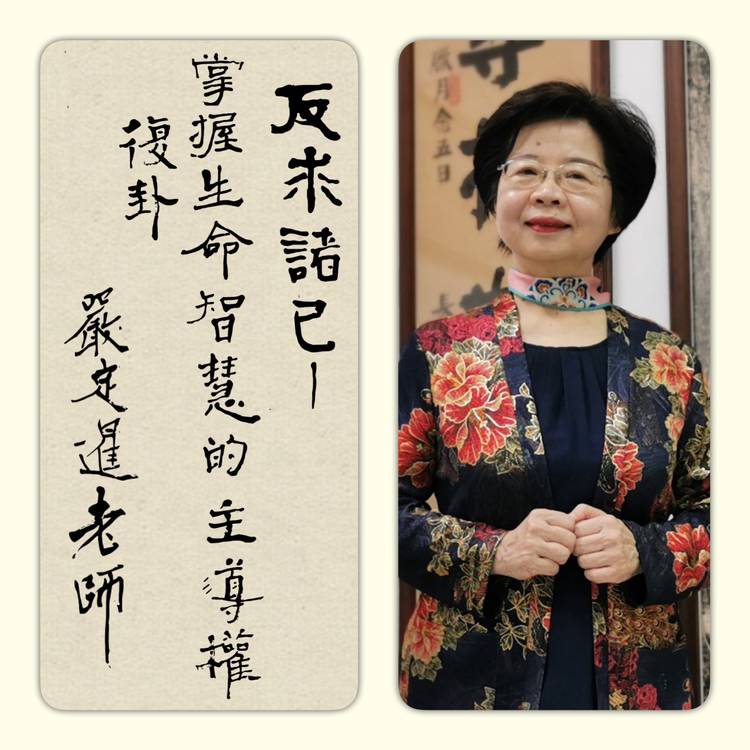 反求諸己—
掌握生命智慧的主導權
復卦
嚴定暹老師
月念五日